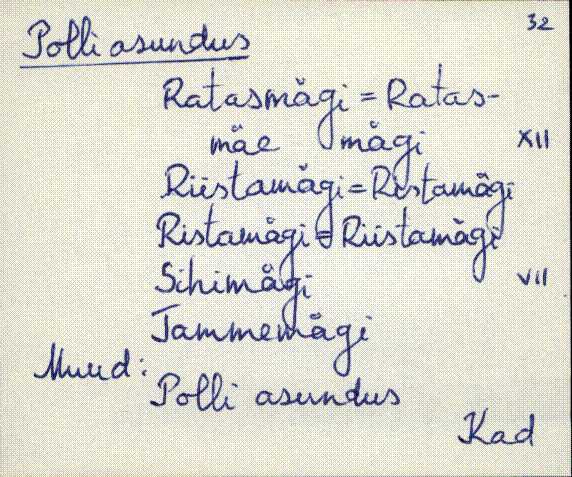 32
Polli asundus
Ratasmägi = Ratas-
mäe mägi XII
Riistamägi = Ristamägi
Ristamägi = Riistamägi
Sihimägi VII
Tammemägi
Muud:
Polli asundus
Kad